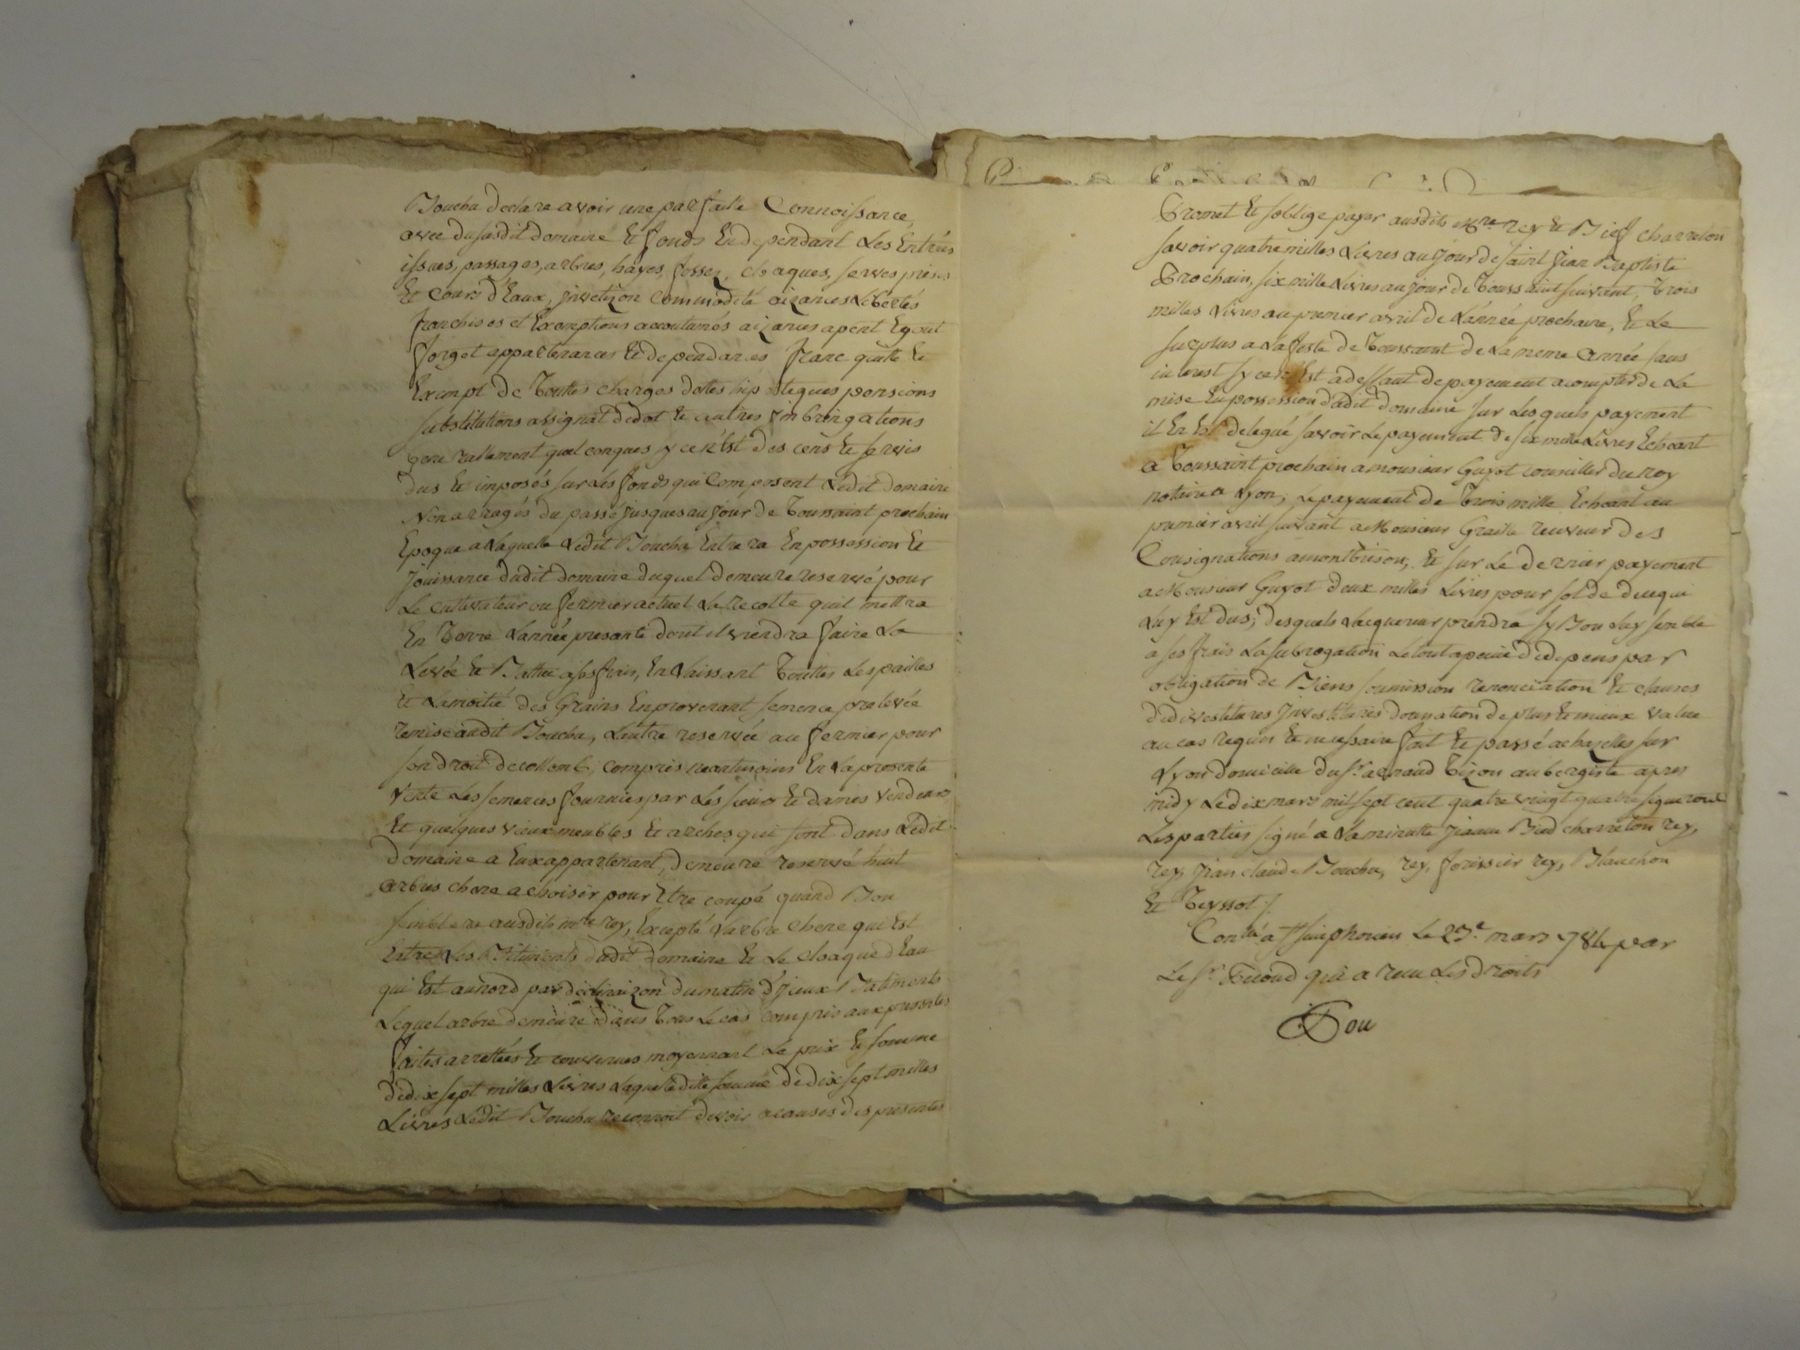 Bouchu declare avoir une parfaitte Connoissance
avec dusasdit domaine Et fonds En dependant Les Entrées
issues, passages, arbres, hayes, fossez, cloaques, serves prises
Et Cours d'Eaux, commodité aizances Libertés
franchises et Exemptions accoutumés aizances apent Egout
forget appartenances Et dependances franc quitte Et
Exempt de Touttes charges dettes hipoteques pensions
substitutions assignat de dot Et autres Imbrigations
generallement quelconques y ce n'Est des cens Et servis
dus Et imposés sur Les fonds qui Composent Ledit domaine
Non arragés du passé jusques au jour de Toussaint prochain
Epoque a Laquelle Ledit Bouchu Entrera En possession Et
Jouissance dudit domaine duquel demeure reservé pour
Le cultivateur ou fermier actuel La recolte quil mettra
En Terre L'année presante dont il viendra faire La
Levée Et Battre a ses frais, En Laissant Touttes Les pailles
Et La moitié des Grains En provenant semence prelevée
remise audit Bouchu, L'autre reservée au fermier pour
son droit de collont, compris neantmoins En La presente
Vente Les semences fournies par Les sieurs Et dames vendeurs
Et quelques vieux meubles Et arches qui sont dans Ledit
domaine a Eux appartenant, demeure reservé huit
arbres chene a choisir pour Etre coupé quand Bon
semblera ausdits mre rey, Excepté L'arbre chene qui Est
Entre Les Bâtiments dudit domaine Et Le cloaque d'Eau
qui Est au nord par declinaizon du matin d'yceux Batiments
Lequel arbre demeure dans Tous Le cas compris aux presentes
faites arrettées Et convenues moyennant Le prix Et somme
de dix sept milles Livres Laquelle dite somme de dix sept milles
Livres Ledit Bouchu reconnoit devoir a causes des presentes
Promet Et s'oblige payer ausdits mre rey Et Bief charreton
savoir quatre milles Livres au jour de saint Jean Baptiste
Prochain, six mille Livres au jour de Toussaint suivant, Trois
milles Livres au premier avril de L'année prochaine, Et Le
surplus a La feste de Toussaint de La meme année sans
interest sy ce n'Est a deffaut de payement a compter de La
mise En possession dudit domaine sur Lesquels payement
il En Est delegué savoir Le payement de six mille Livres Echeant
a Toussaint prochain a monsieur Guyot conseiller du roy
notaire a Lyon, Le payement de Trois mille Echeant au
premier avril suivant a Monsieur Graille receveur des
Consignations a montbrison, Et sur Le dernier payement
a Monsieur Guyot deux milles Livres pour solde de ce que
Luy Est dus; desquels L'acquereur prendra sy Bon Luy semble
a ses frais La subrogation Le tout a peine de depens par
obligation de Biens soumission renonciation Et clauses
de divestitures Investitures donnation de plus Et mieux value
au cas requis Et necessaire fait Et passé a chazelles sur
Lyon domicille du sr. arnaud Tizon aubergiste apres
midy Le dix mars mil sept cent quatre vingt quatre signeront
Les parties signé a La minutte Jeanne Bied charreton rey,
rey, Jean claude Bouchu, rey, forissier rey, Blanchon
Et Teyssot /.
Conllé a st simphorien Le 23e mars 1784 par
Le sr. qui a reçu Les droits